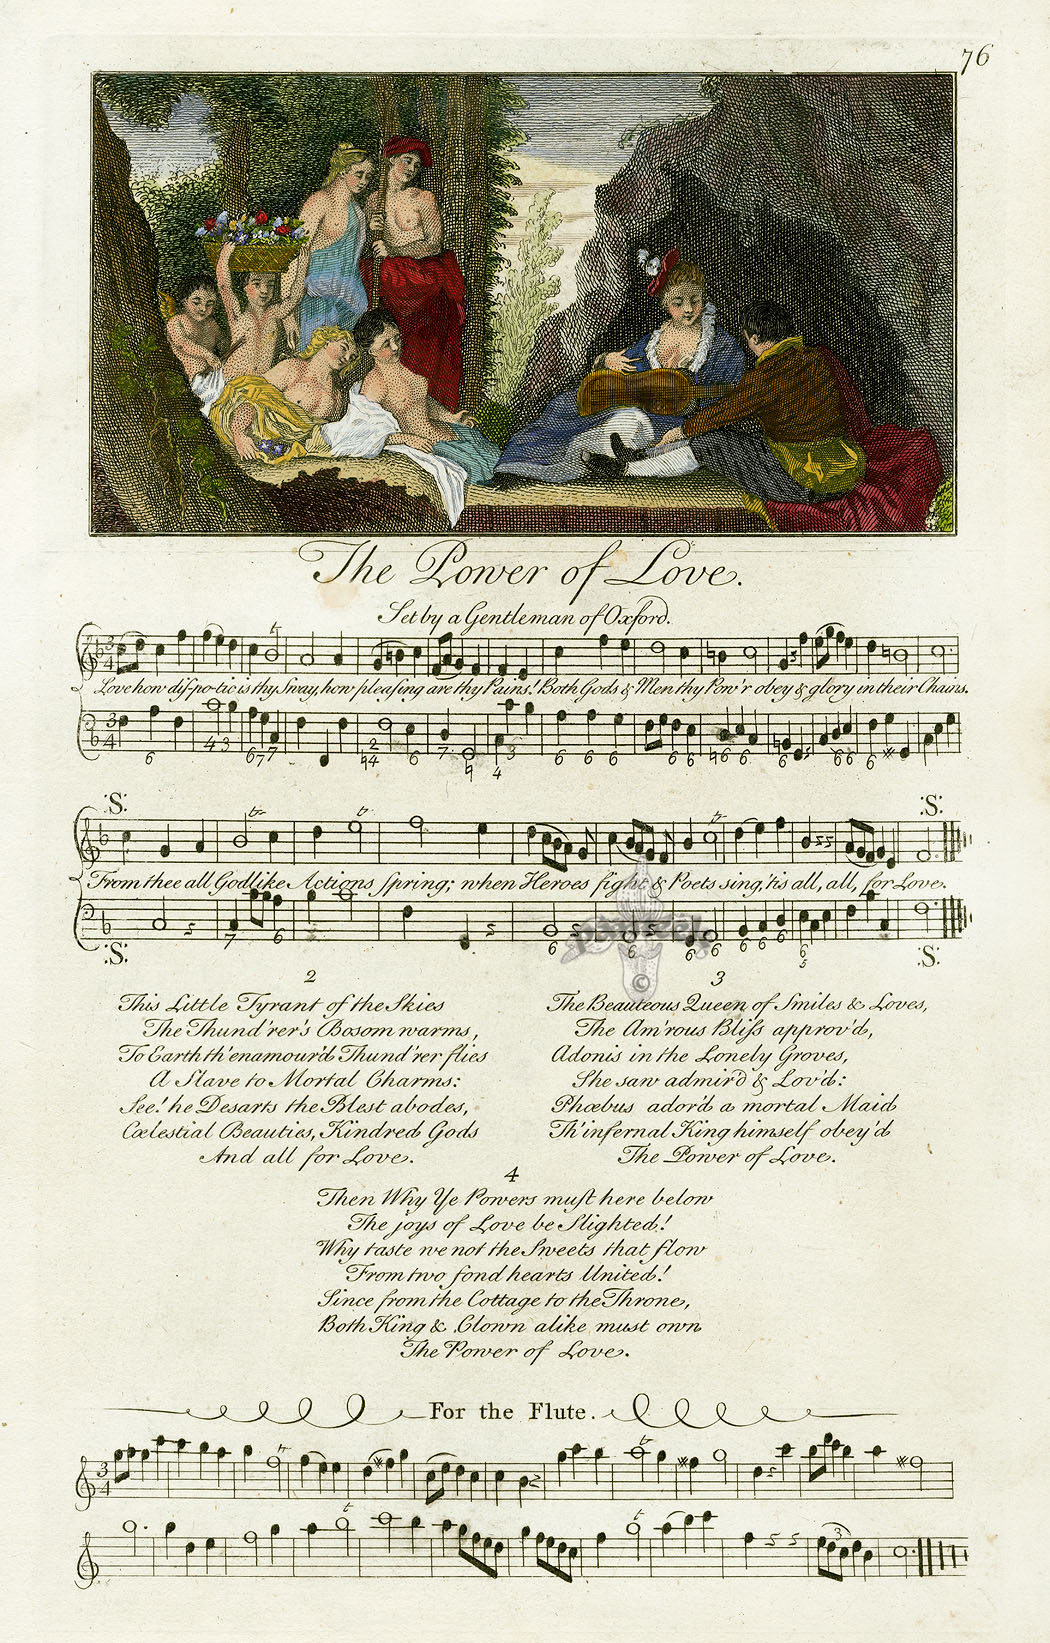 76
The Power of Love.
Set by a Gentleman of Oxford.
Love how dis-po-tic is thy Sway, how pleasing are thy Pains! Both Gods & Men thy Pow'r obey & glory in their Chains.
:S: :S:
From thee all Godlike Actions spring; when Heroes fight & Poets sing, 'tis all, all, for Love.
:S: :S:
2
This Little Tyrant of the Skies
The Thund'rer's Bosom warms,
To Earth th'enamour'd Thund'rer flies
A Slave to Mortal Charms:
See! he Desarts the Blest abodes,
Cœlestial Beauties, Kindred Gods
And all for Love.
3
The Beauteous Queen of Smiles & Loves,
The Am'rous Bliss approv'd,
Adonis in the Lonely Groves,
She saw admir'd & Lov'd:
Phœbus ador'd a mortal Maid
Th'infernal King himself obey'd
The Power of Love.
4
Then Why Ye Powers must here below
The joys of Love be Slighted!
Why taste we not the Sweets that flow
From two fond hearts United!
Since from the Cottage to the Throne,
Both King & Clown alike must own
The Power of Love.
For the Flute.